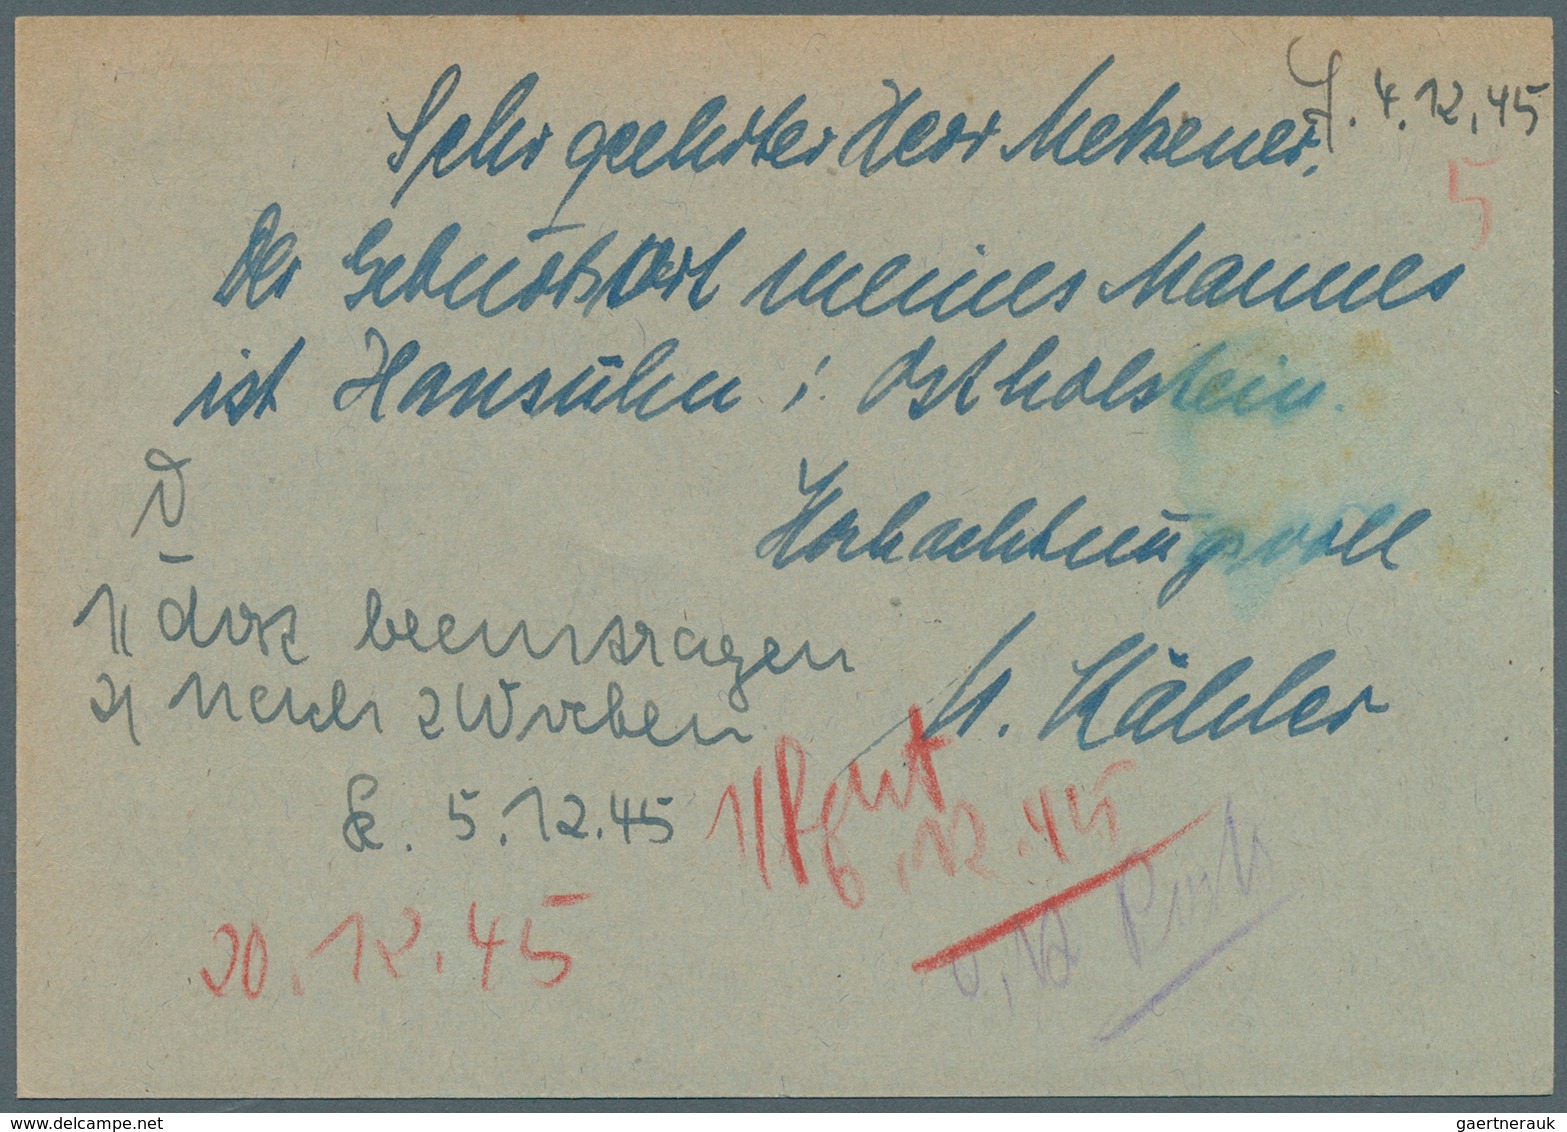 4.12.45
Sehr geehrter Herr Metzener,
5
Der Geburtsort meines Mannes
ist Hansühn i. Ostholstein.
Hochachtungsvoll
1) dort beantragen
2) nach 2 Wochen
W. Kähler
5.12.45
6.12.45
20.12.45
delcampe.net
gaertnerauk